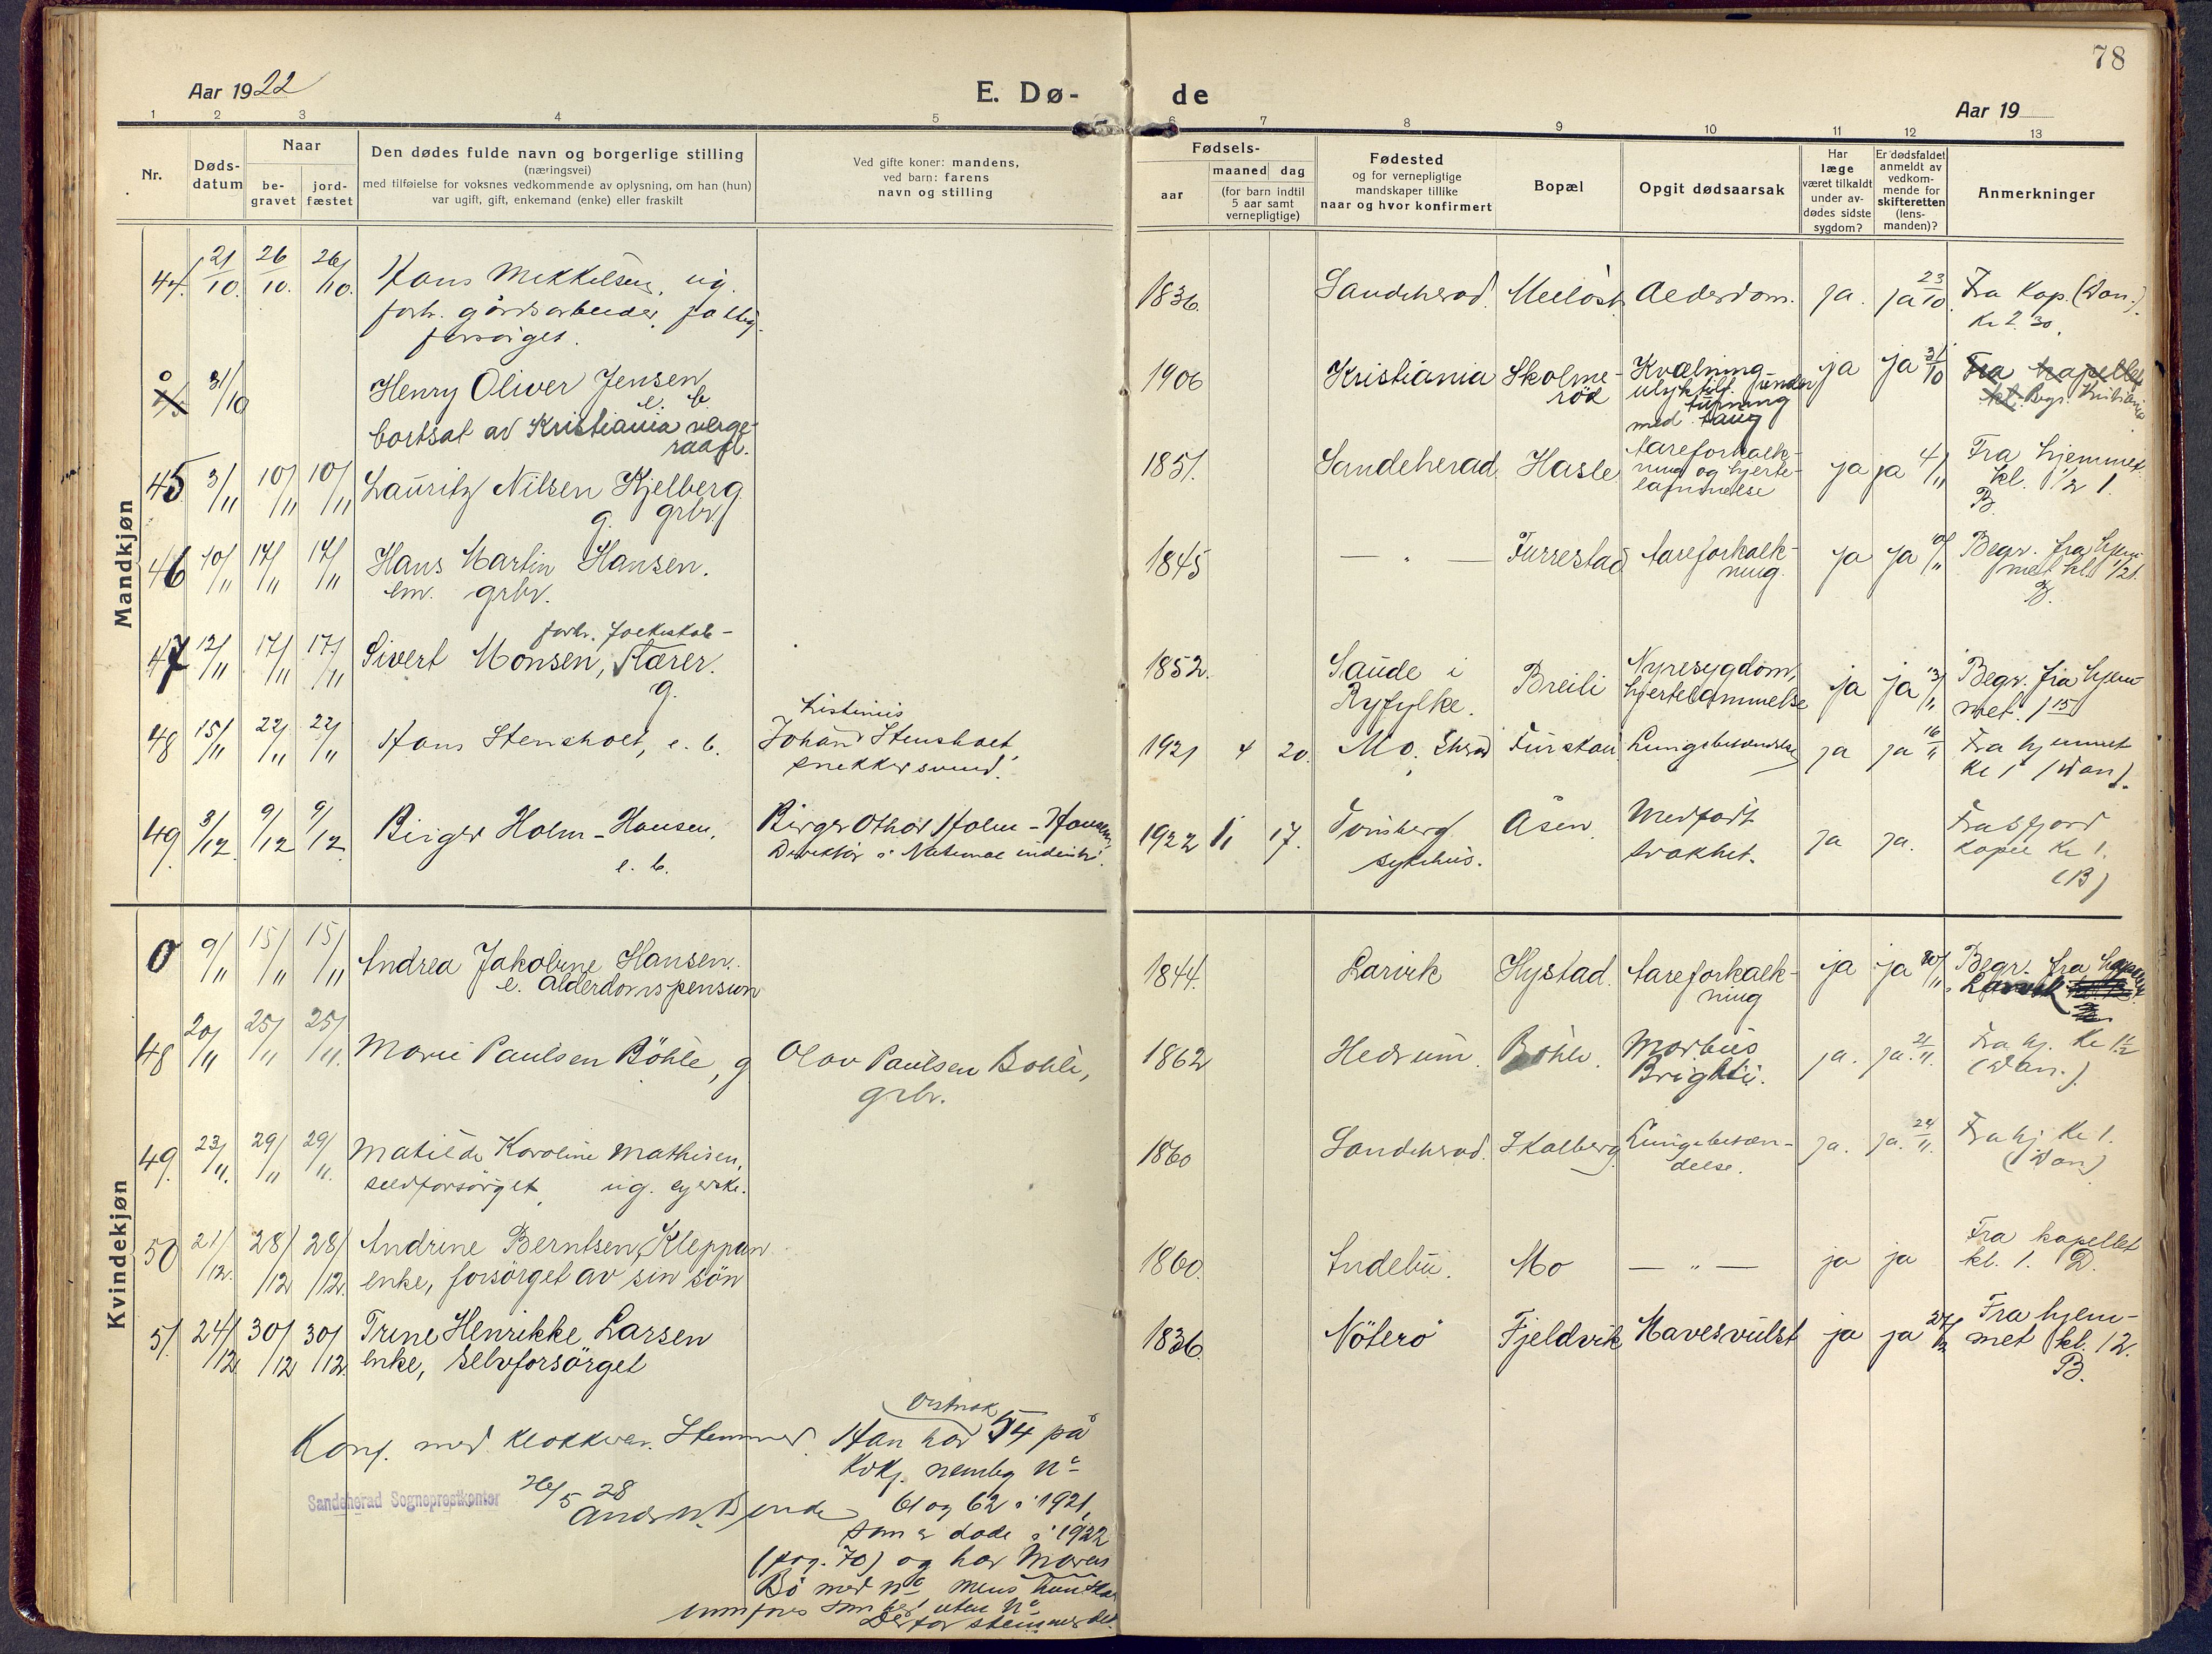 78
Aar 1922
E. Dø-
de
Aar 19
1 2 3 4 5 6 7 8 9 10 11 12 13
Nr.
Døds-
datum
Naar
be-
gravet
jord-
fæstet
Den dødes fulde navn og borgerlige stilling
(næringsvei)
med tilføielse for voksnes vedkommende av oplysning, om han (hun)
var ugift, gift, enkemand (enke) eller fraskilt
Ved gifte koner: mandens,
ved barn: farens
navn og stilling
Fødsels-
aar
maaned dag
(for barn indtil
5 aar samt
vernepligtige)
Fødested
og for vernepligtige
mandskaper tillike
naar og hvor konfirmert
Bopæl
Opgit dødsaarsak
Har
læge
været tilkaldt
under av-
dødes sidste
sygdom?
Er dødsfaldet
anmeldt av
vedkom-
mende for
skifteretten
(lens-
manden)?
Anmerkninger
Mandkjøn
44. 21/10. 26/10. 26/10. Hans Mikkelsen, ug.
forh. gårdsarbeider, fattig-
forsörget.
1836. Sandeherad. Alderdom. ja. ja 23/10. Fra Kap. (Dan.)
Kl 2.30.
0 31/10 Henry Oliver Jensen
e. b.
bortsat av Kristiania verge-
raad.
1906 Kristiania Skolme-
röd
Kvælning
ulyktilf. under
turning
med taug
ja ja 31/10 Fra kapellet
kl. Begr. Kristiania
45 3/11 10/11 10/11 Lauritz Nilsen Kjelberg
g. grbr.
1851. Sandeherad Hasle Aareforkalk-
ning og hjerte-
lammelse
ja ja 4/11 Fra hjemmet
kl. 1/2 1.
B.
46 10/11 17/11 17/11 Hans Martin Hansen.
em. grbr.
1845 — " — Furrestad Aareforkalk-
ning.
ja ja /11 Begr. fra hjem-
met kl. 1/2 1.
B.
47 12/11 17/11 17/11 Sivert Monsen, forh. folkeskole-
lærer.
g.
1852. Saude i
Ryfylke.
Breili Nyresygdom,
hjertelammelse
ja ja 13/11 Begr. fra hjem-
met. 1 15
48 15/11 22/11 22/11 Hans Stensholt, e. b. Kristinius
Johan Stensholt,
snekkersvend.
1921 4 20. Mo. Shrd Furstad Lungebetændelse ja ja 16/11 Fra hjemmet
Kl 1 (Dan).
49. 3/12. 9/12 9/12. Birger Holm-Hansen,
e. b.
Birger Othar Holm-Hansen,
Direktör i National industri.
1922 11 17. Tönsberg
sykehus.
Åsen Medfödt
svakhet.
ja ja. Fra Sfjord
kapel Kl 1.
(B)
Kvindekjøn
0 9/11 15/11 15/11 Andrea Jakobine Hansen.
e. Alderdomspension
1844. Larvik Hystad. Aareforkalk-
ning
ja ja 10/11 Begr. fra kapellet
Larvik
48 20/11 25/11 25/11. Marie Paulsen Böhle, g Olav Paulsen Bohle,
grbr.
1862 Hedrum. Böhle. Morbus
Brightii.
ja. ja. 21/11 Fra hj. Kl 12
(Dan.)
49. 23/11. 29/11 29/11. Matilde Karoline Mathisen,
selvforsörget, ug. syerske.
1860 Sandeherad. Skalberg. Lungebetæn-
delse.
ja. ja. 24/11. Fra hj. Kl 1.
(Dan)
50 21/12. 28/12 28/12. Andrine Berntsen, Kleppan
enke, forsörget av sin sön
1860. Andebu. Mo — " — ja ja Fra kapellet
kl. 1. D.
51. 24/12. 30/12 30/12. Trine Henrikke Larsen
enke, selvforsörget
1836. Nöterö Fjeldvik Mavesvulst ja ja 27/12 Fra hjem-
met kl. 12.
B.
Konf. med klokkeren. Stemmer.
Sandeherad Sogneprestkontor
26/5 28
vistnok
Han har 54 på
Kvkj. nemlig No
61 og 62 i 1921,
som er döde i 1922
(pag. 70) og har Maren
Bö med No mens hun skal
innföres uten No
Derfor stemmer det.